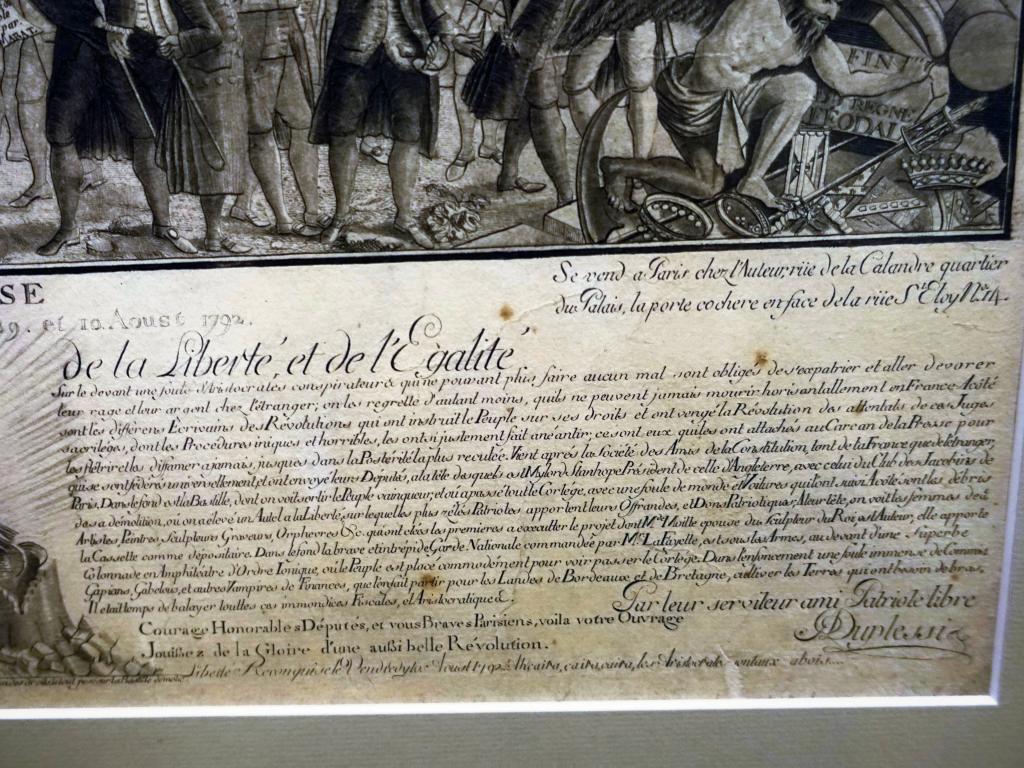 ble e
par.
FINI
REGNE
FEODAL
SE
Se vend a Paris chez l'Auteur, rüe de la Calandre quartier
du Palais, la porte cochere en face de la rüe St. Eloy No. 14.
9. et 10. Aoust 1792.
de la Liberté, et de l'Egalité
Sur le devant une foule d'Aristocrates conspirateurs qui ne pouvant plus faire aucun mal sont obligés de s'expatrier et aller devorer
leur rage et leur argent chez l'étranger; on les regrette d'autant moins, quils ne peuvent jamais mourir horisantallement en France. Acôté
sont les differens Ecrivains des Révolutions qui ont instruit le Peuple sur ses droits et ont vengé la Révolution des attentats de ces Juges
sacrilèges, dont les Procédures iniques et horribles, les ont si justement fait anéantir; ce sont eux qui les ont attachés au Carcan de la Presse pour
les flétrir et les diffamer ajamais, jusques dans la Postérité la plus reculée. Vient après la Société des Amis de la Constitution, tant de la France que de l'etranger,
qui se sont fédérés universellement, et ont envoyé leurs Députés, a la tête desquels est Mylord Stanhope Président de celle d'Angleterre, avec celui du Club des Jacobins de
Paris. Dans le fond est la Bastille, dont on voit sortir le Peuple vainqueur, et où a passé tout le Cortège, avec une foule de monde et Voitures qui l'ont suivi. Acôté sont les débris
de sa démolition, où on a élevé un Autel a la Liberté, sur lequel les plus zélés Patriotes apportent leurs Offrandes, et Dons Patriotiques; A leur tête, on voit les femmes des
Artistes Peintres, Sculpteurs, Graveurs, Orphevres &c. qui ont eté les premieres a executter le projet dont Me. Moitte epouse du Sculpteur du Roi est l'Auteur, elle apporte
la Cassette comme dépositaire. Dans le fond la brave et intrépide Garde Nationale commandée par Mr. La Fayette, est sous les Armes, au devant d'une Superbe
Colonnade en Amphiléatre d'Ordre Ionique, où le Peuple est placé commodement pour voir passer le Cortège. Dans l'enfoncement une foule immense de Commis
Gapians, Gabelous, et autres Vampires de Finances, que l'on fait partir pour les Landes de Bordeaux et de Bretagne, cultiver les Terres qui ont besoin de bras,
Il etait temps de balayer touttes ces immondices Fiscales, et Aristocratique &.
Par leur serviteur ami Patriote libre
Courage Honorables Députés, et vous Braves Parisiens, voila votre Ouvrage
Duplessis
Jouissez de la Gloire d'une aussi belle Révolution.
Liberté Reconquise le Vendredy Aoust 1792 Ah ca ira, ca ira, ca ira, les Aristocrate